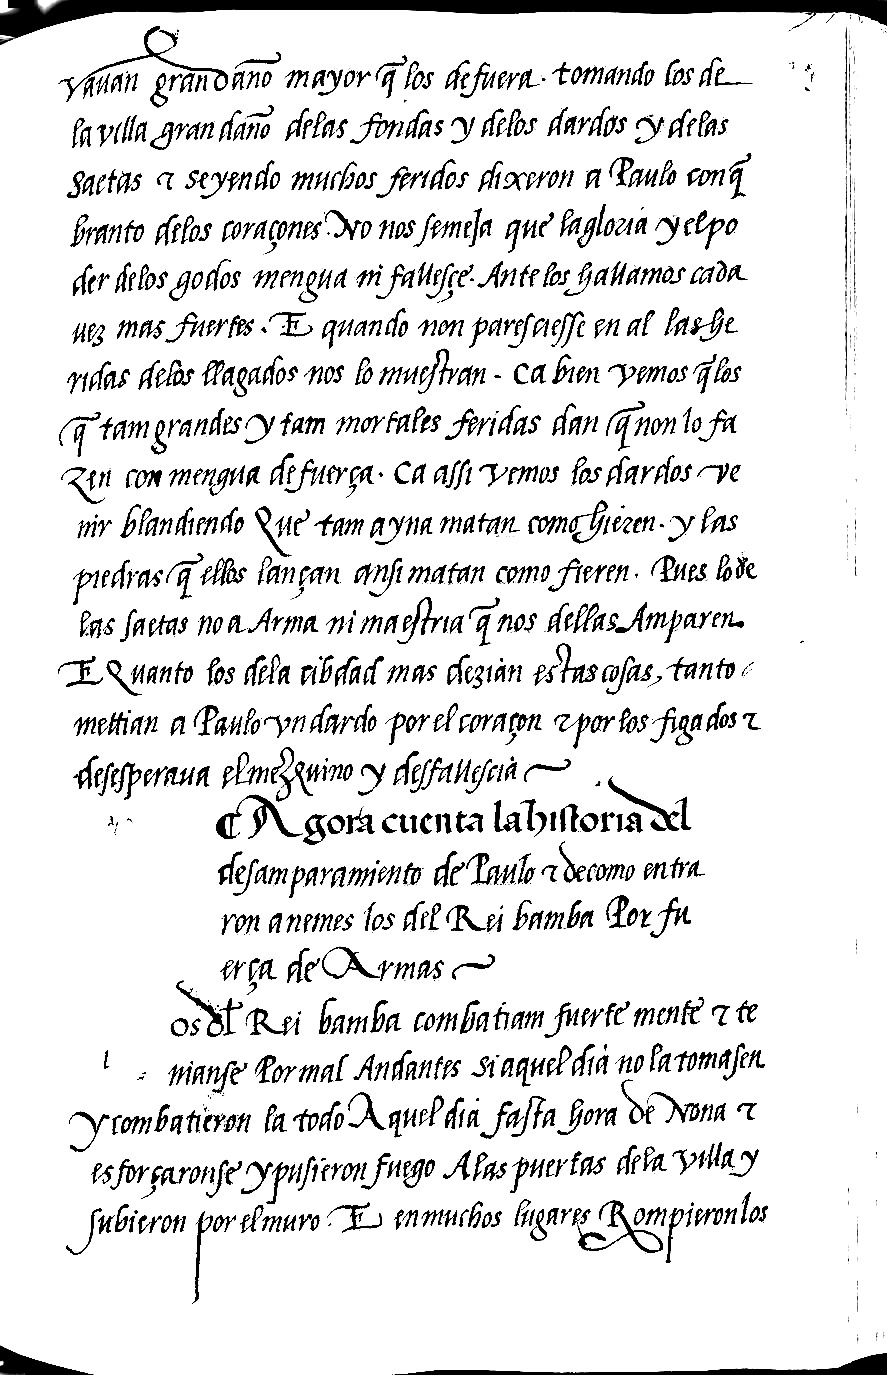 vauan grand año mayor q̃ los de fuera. tomando los de
la villa gran daño delas fondas y delos dardos y delas
Saetas ⁊ seyendo muchos feridos dixeron a Paulo con q̃
branto delos coraçones No nos semeja que la gloria y el po
der delos godos mengua ni fallesçe. Ante los hallamos cada
uez mas fuertes. E quando non paresciesse en al las he
ridas delos llagados nos lo muestran. Ca bien vemos q̃ los
q̃ tam grandes y tam mortales feridas dan q̃ non lo fa
zen con mengua de fuerça. Ca assi vemos los dardos ve
nir blandiendo Que tam ayna matan como hieren. y las
piedras q̃ ellos lançan ansi matan como fieren. Pues lo de
las saetas no a Arma ni maestria q̃ nos dellas Amparen.
E Quanto los dela cibdad mas dezian estas cosas, tanto
mettian a Paulo vn dardo por el coraçon ⁊ por los figados ⁊
desesperaua el mezquino y desfallescia
¶ Agora cuenta la historia del
desamparamiento de Paulo ⁊ de como entra
ron a nemes los del Rei bamba Por fu
erça de Armas
os dl Rei bamba combatiam fuerte mente ⁊ te
nianse Por mal Andantes si aquel dia no la tomasen
y combatieron la todo Aquel dia fasta hora de Nona ⁊
esforçaronse y pusieron fuego A las puertas dela villa y
subieron por el muro. E en muchos lugares Rompieron los